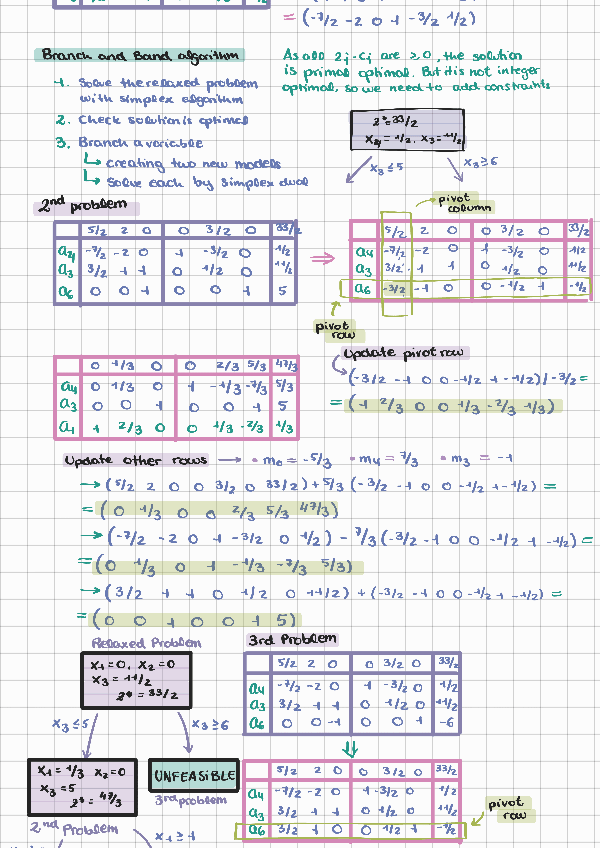 = (-7/2 -2 0 1 -3/2 1/2)
Branch and Band algorithm
1. Solve the relaxed problem
with simplex algorithm
2. Check solution is optimal
3. Branch a variable
↳ creating two new models
↳ Solve each by simplex dual
As all zj-cj are ≥0, the solution
is primal optimal. But it is not integer
optimal, so we need to add constraints
z*=33/2
x4=1/2, x3=11/2
x3≤5 x3≥6
2nd problem
5/2 2 0 0 3/2 0 33/2
a4 -7/2 -2 0 1 -3/2 0 1/2
a3 3/2 1 1 0 1/2 0 11/2
a6 0 0 1 0 0 1 5
⇒
pivot
column
5/2 2 0 0 3/2 0 33/2
a4 -7/2 -2 0 1 -3/2 0 1/2
a3 3/2 1 1 0 1/2 0 11/2
a6 -3/2 -1 0 0 -1/2 1 -1/2
pivot
row
0 1/3 0 0 2/3 5/3 47/3
a4 0 1/3 0 1 -1/3 -7/3 5/3
a3 0 0 1 0 0 1 5
a1 1 2/3 0 0 1/3 -2/3 1/3
Update pivot row
(-3/2 -1 0 0 -1/2 1 -1/2)/-3/2 =
= (1 2/3 0 0 1/3 -2/3 1/3)
Update other rows → • m0 = -5/3 • m4 = 7/3 • m3 = -1
→ (5/2 2 0 0 3/2 0 33/2) + 5/3 (-3/2 -1 0 0 -1/2 1 -1/2) =
= (0 1/3 0 0 2/3 5/3 47/3)
→ (-7/2 -2 0 1 -3/2 0 1/2) - 7/3 (-3/2 -1 0 0 -1/2 1 -1/2) =
= (0 1/3 0 1 -1/3 -7/3 5/3)
→ (3/2 1 1 0 1/2 0 11/2) + (-3/2 -1 0 0 -1/2 1 -1/2) =
= (0 0 1 0 0 1 5)
Relaxed Problem
x1=0, x2=0
x3=11/2
z*=33/2
x3≤5 x3≥6
x1=1/3 x2=0
x3=5
z*=47/3
UNFEASIBLE
3rd problem
2nd Problem
x1≥1
3rd Problem
5/2 2 0 0 3/2 0 33/2
a4 -7/2 -2 0 1 -3/2 0 1/2
a3 3/2 1 1 0 1/2 0 11/2
a6 0 0 -1 0 0 1 -6
⇓
5/2 2 0 0 3/2 0 33/2
a4 -7/2 -2 0 1 -3/2 0 1/2
a3 3/2 1 1 0 1/2 0 11/2
a6 3/2 1 0 0 1/2 1 -1/2
pivot
row